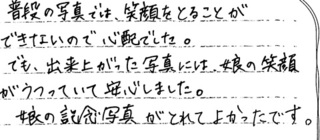 普段の写真では、笑顔をとることが
できないので心配でした。
でも、出来上がった写真には、娘の笑顔
がうつっていて安心しました。
娘の記念写真がとれてよかったです。